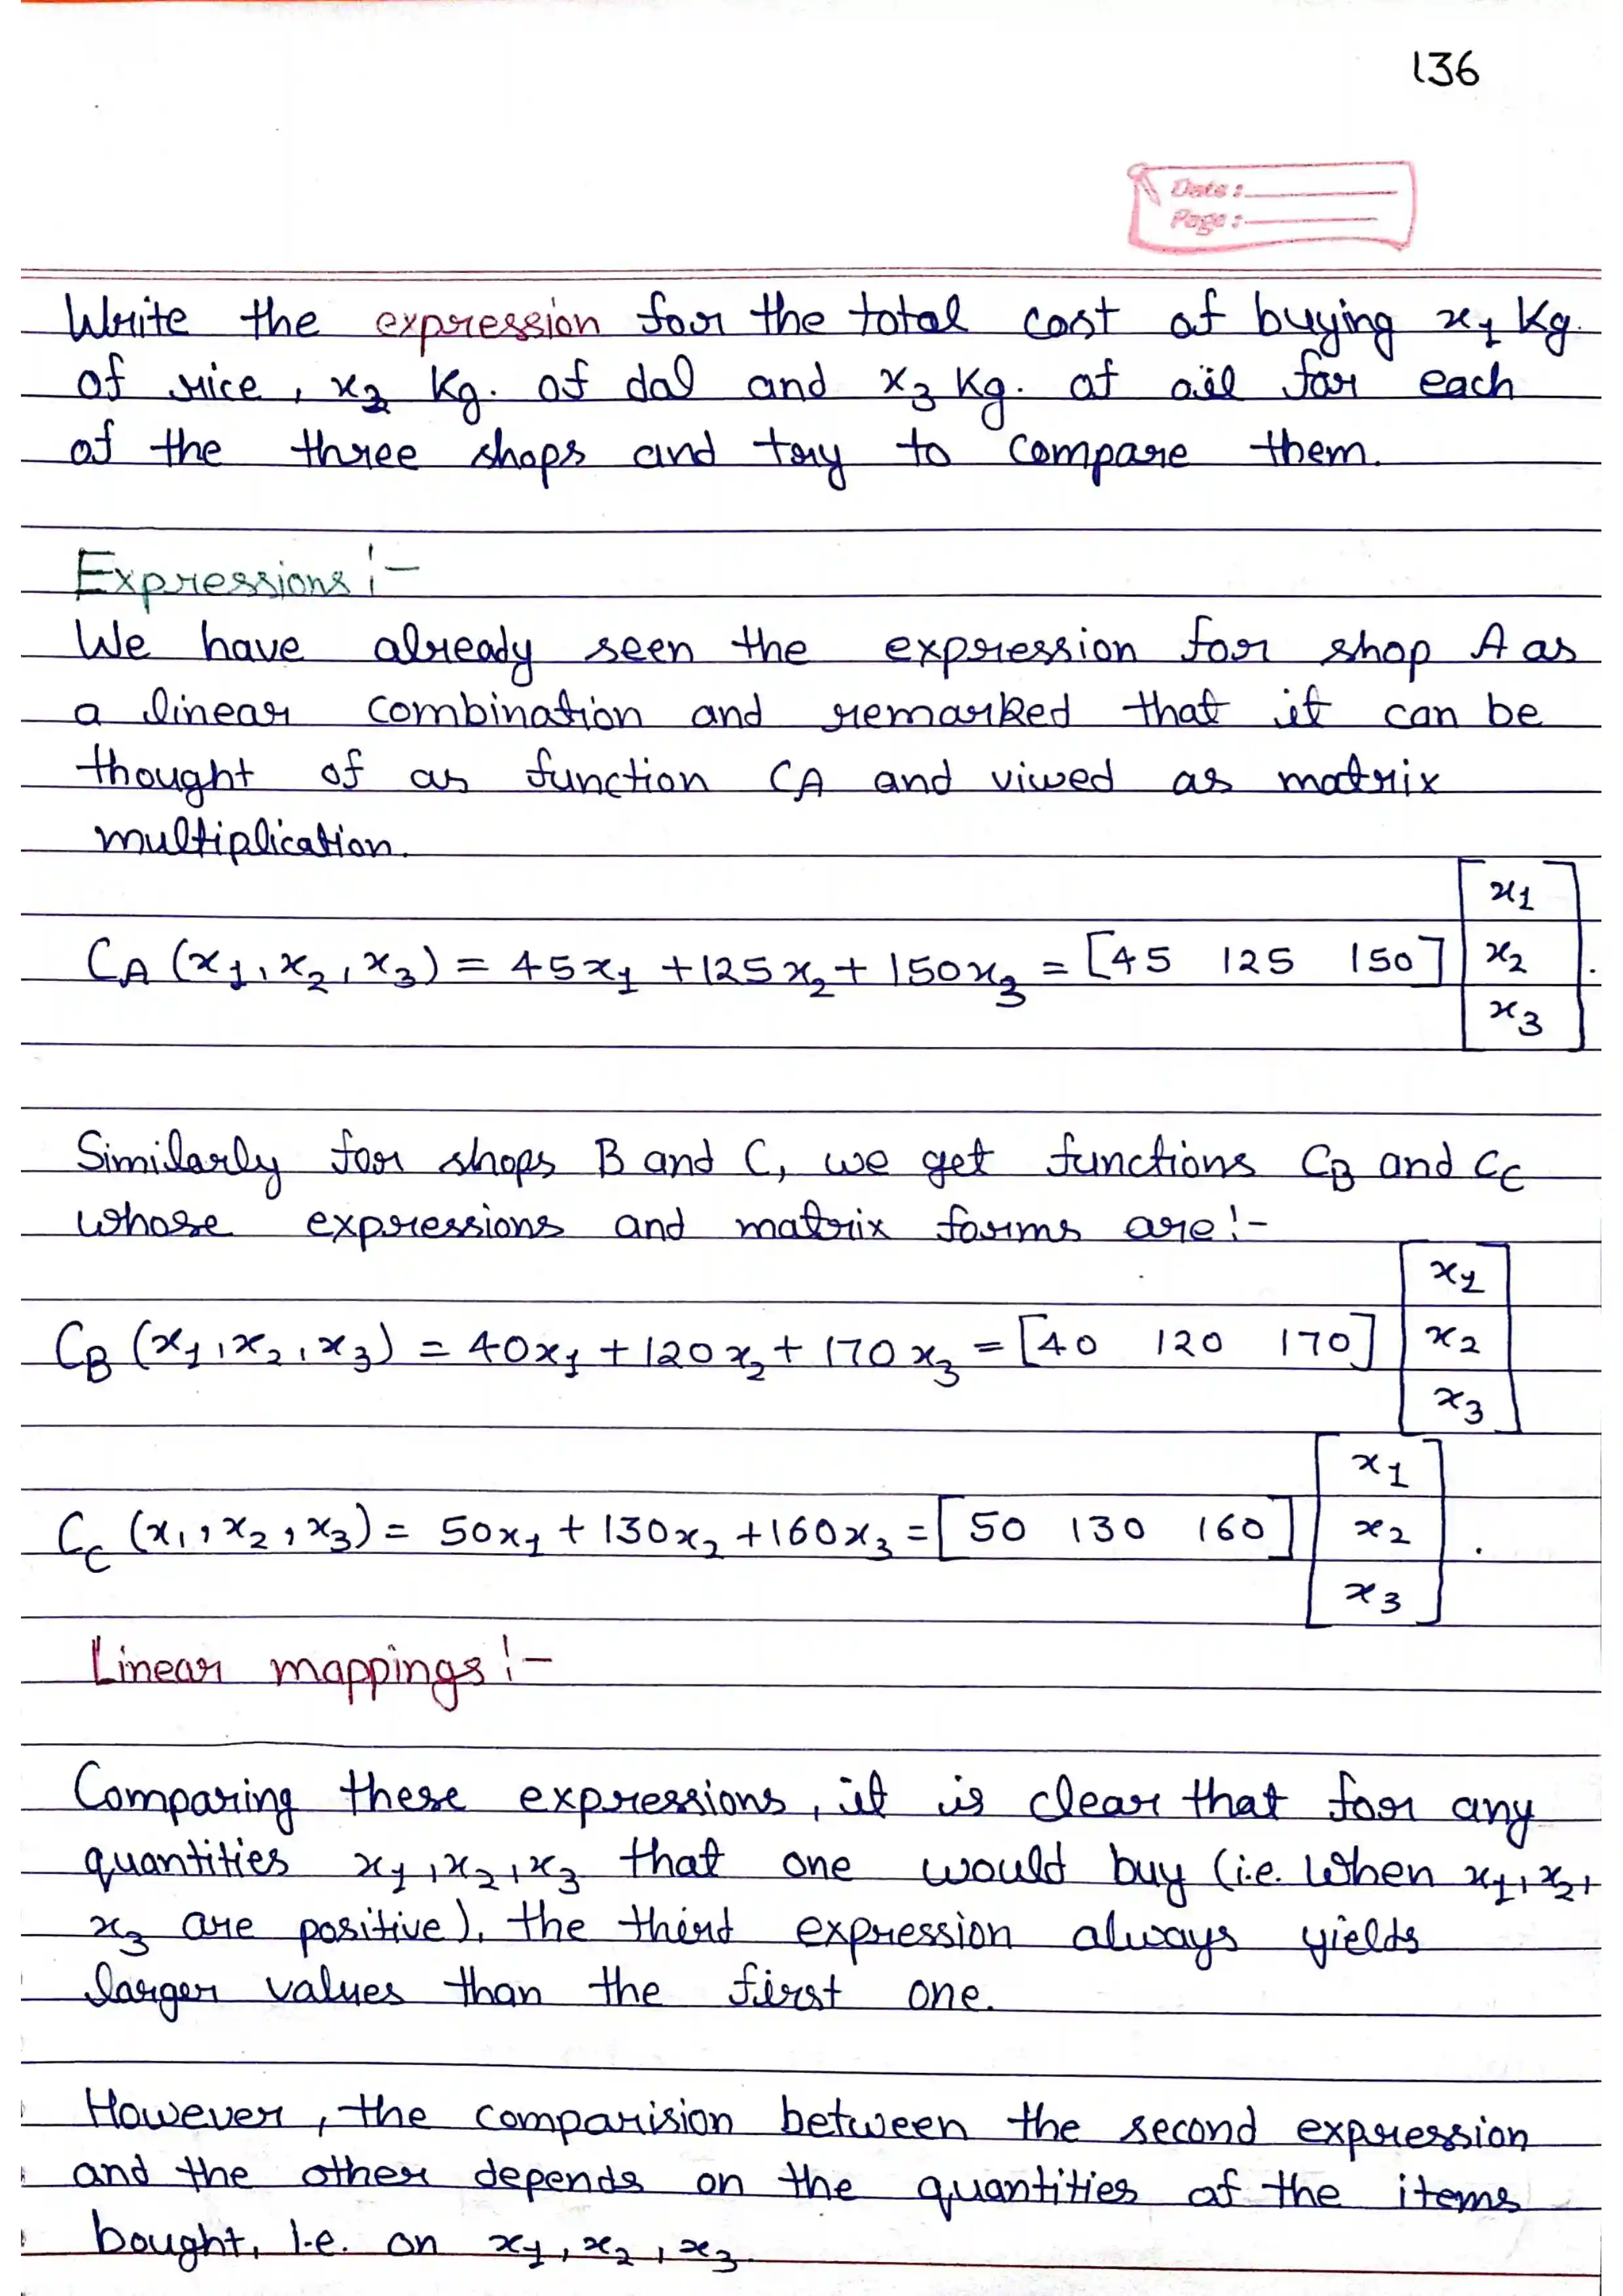 136
Date :
Page :
Write the expression for the total cost of buying x₁ Kg.
of rice, x₂ Kg. of dal and x₃ Kg. of oil for each
of the three shops and try to compare them.
Expressions :-
We have already seen the expression for shop A as
a linear combination and remarked that it can be
thought of as function CA and viwed as matrix
multiplication.
C_A (x₁, x₂, x₃) = 45x₁ + 125x₂ + 150x₃ = [45 125 150] [x₁ x₂ x₃].
Similarly for shops B and C, we get functions C_B and C_C
whose expressions and matrix forms are :-
C_B (x₁, x₂, x₃) = 40x₁ + 120x₂ + 170x₃ = [40 120 170] [x₁ x₂ x₃]
C_C (x₁, x₂, x₃) = 50x₁ + 130x₂ + 160x₃ = [50 130 160] [x₁ x₂ x₃].
Linear mappings :-
Comparing these expressions, it is clear that for any
quantities x₁, x₂, x₃ that one would buy (i.e. When x₁, x₂,
x₃ are positive), the third expression always yields
larger values than the first one.
However, the comparision between the second expression
and the other depends on the quantities of the items
bought, I.e. on x₁, x₂, x₃.